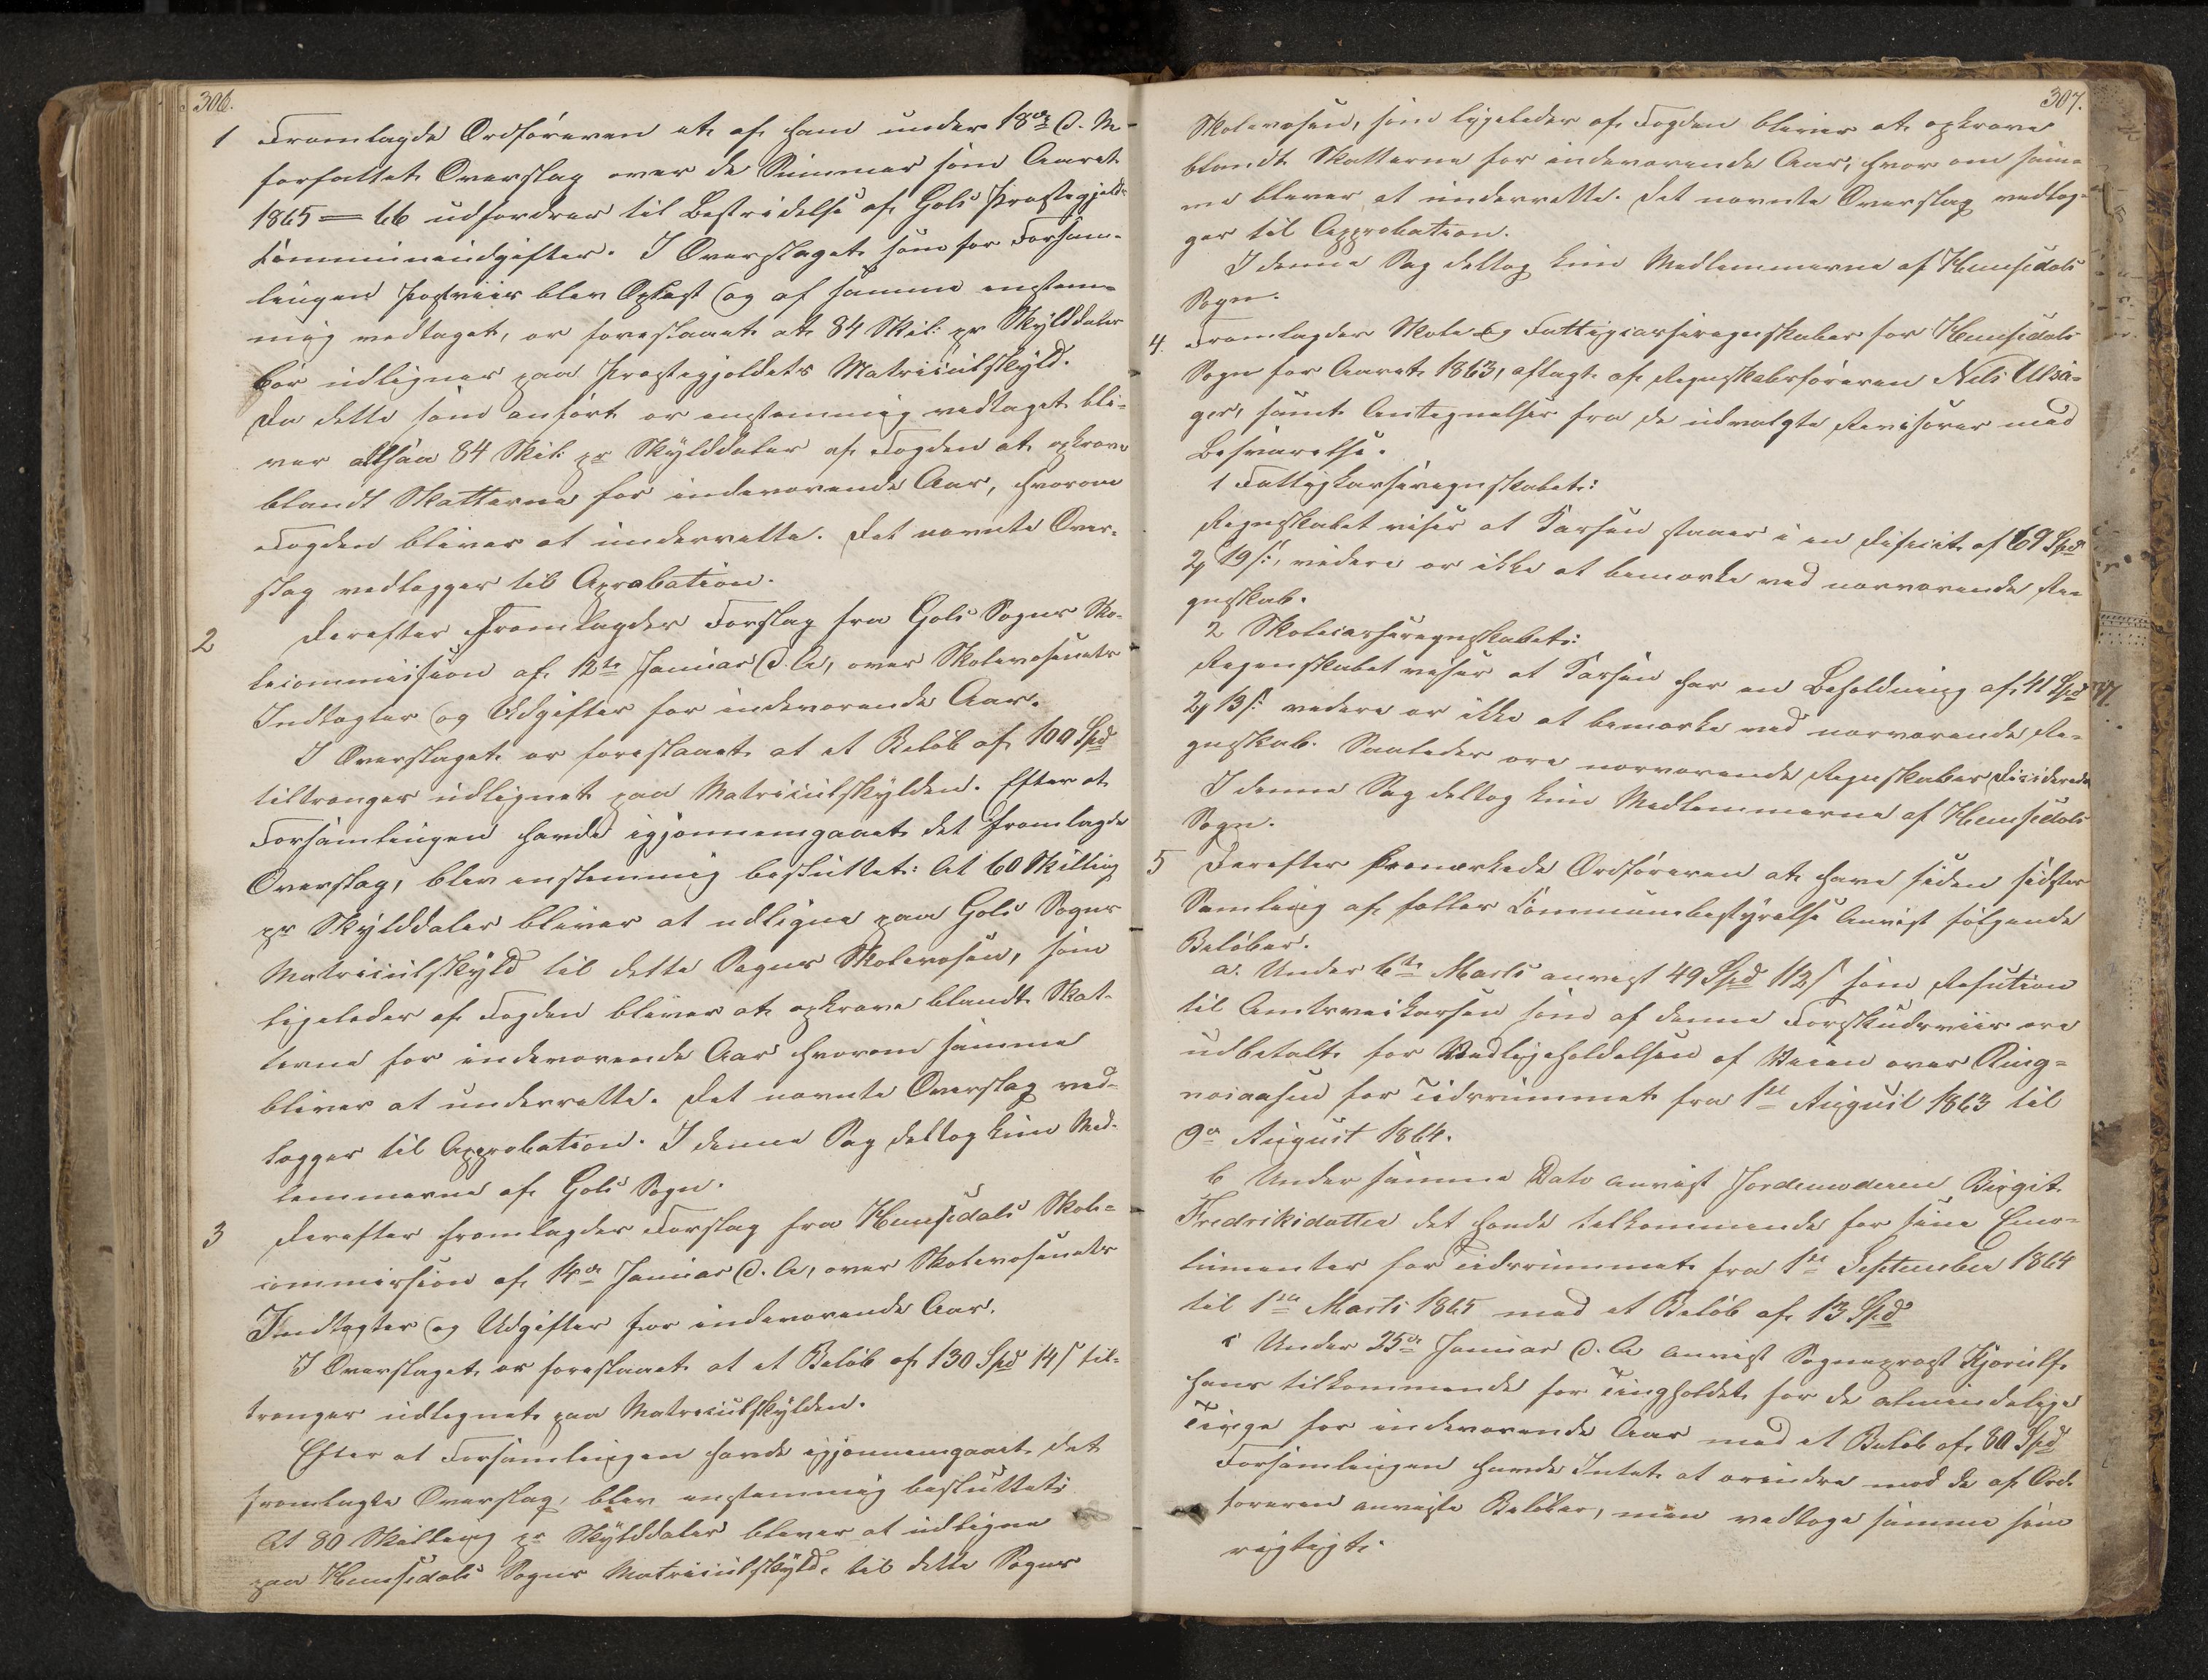 306.
1 Fremlagde Ordføreren et af ham under 18de d. M.
forfattet Overslag over de Summer som Aaret
1865–66 udfordres til Bestridelse af Gols Præstegjelds
Communeudgifter. I Overslaget som for Forsam-
lingen Postviis blev Oplæst og af samme enstem-
mig vedtaget, er foreslaaet at 84 Skil: pr Skylddaler
bør udlignes paa Præstegjeldets Matriculskyld.
Da dette som anført er enstemmig vedtaget bli-
ver altsaa 84 Skil: pr Skylddaler af Fogden at opkræve
blandt Skatterne for indeværende Aar, hvorom
Fogden bliver at underrette. Det nævnte Over-
slag vedlægges til Aprobation.
2 Derefter Fremlagdes Forslag fra Gols Sogns Sko-
lecommission af 12te Januar d. A, over Skolevæsenets
Indtægter og Udgifter for indeværende Aar.
I Overslaget er foreslaaet at et Beløb af 100 Spd
tiltrænges udlignet paa Matriculskylden. Efter at
Forsamlingen havde igjennemgaaet det fremlagde
Overslag, blev enstemmig besluttet: At 60 Skilling
pr Skylddaler bliver at udligne paa Gols Sogns
Matriculskyld til dette Sogns Skolevæsen, som
ligeledes af Fogden bliver at opkræve blandt Skat-
terne for indeværende Aar hvorom samme
bliver at underrette. Det nævnte Overslag ved-
lægges til Approbation. I denne Sag deltog kun Med-
lemmerne af Gols Sogn.
3 Derefter fremlagdes Forslag fra Hemsedals Skole-
commission af 14de Januar d. A, over Skolevæsenets
Indtægter og Udgifter for indeværende Aar.
I Overslaget er foreslaaet at et Beløb af 130 Spd 14 s til-
trænges udlignet paa Matriculskylden.
Efter at Forsamlingen havde igjennemgaaet det
fremlagte Overslag, blev enstemmig besluttet:
At 80 Skilling pr Skylddaler bliver at udligne
paa Hemsedals Sogns Matriculskyld, til dette Sogns
307.
Skolevæsen, som ligeledes af Fogden bliver at opkræve
blandt Skatterne for indeværende Aar, hvor om sam-
me bliver at underrette. Det nævnte Overslag vedlæg-
ges til Approbation.
I denne Sag deltog kun Medlemmerne af Hemsedals
Sogn.
4. Fremlagdes Skole og Fattigcasseregnskaber for Hemsedals
Sogn for Aaret 1863, aflagt af Regnskabsføreren Nils Ulsa-
ger, samt Antegnelser fra de udvalgte Revisorer med
Besvarelse.
1 Fattigkasseregnskabet:
Regnskabet viser at Kassen staaer i en Deficit af 69 Spd
2 19 s:, videre er ikke at bemærke ved nærværende Re-
gnskab.
2 Skolecasseregnskabet:
Regenskabet viser at Kassen har en Beholdning af 41 Spd
2 13 s: videre er ikke at bemærke ved nærværende Re-
gnskab. Saaledes ere nærværende Regnskaber Deciderede
I denne Sag deltog kun Medlemmerne af Hemsedals
Sogn.
5 Derefter bemærkede Ordføreren at have siden sidste
Samling af fælles Communebestyrelse Anvist følgende
Beløber.
a. Under 6te Marts anvist 49 Spd 112 s som Refution
til Amtsveikassen som af denne Forskudsviis ere
udbetalt for Vedligeholdelsen af Veien over Ring-
neiaasen for Tidsrummet fra 1ste August 1863 til
9de August 1864.
b Under samme Dato anvist Jordemoderen Birgit
Fredriksdatter det hende tilkommende for sine Emo-
lumenter for Tidsrummet fra 1ste September 1864
til 1ste Marts 1865 med et Beløb af 13 Spd
c Under 25de Januar d. A anvist Sogneprest Kjerulf
hans tilkommende for Tingholdet for de almindelige
Tinge for indeværende Aar med et Beløb af 80 Spd
Forsamlingen havde Intet at erindre mod de af Ord-
føreren anviste Beløber, men vedtoge samme som
rigtigt.